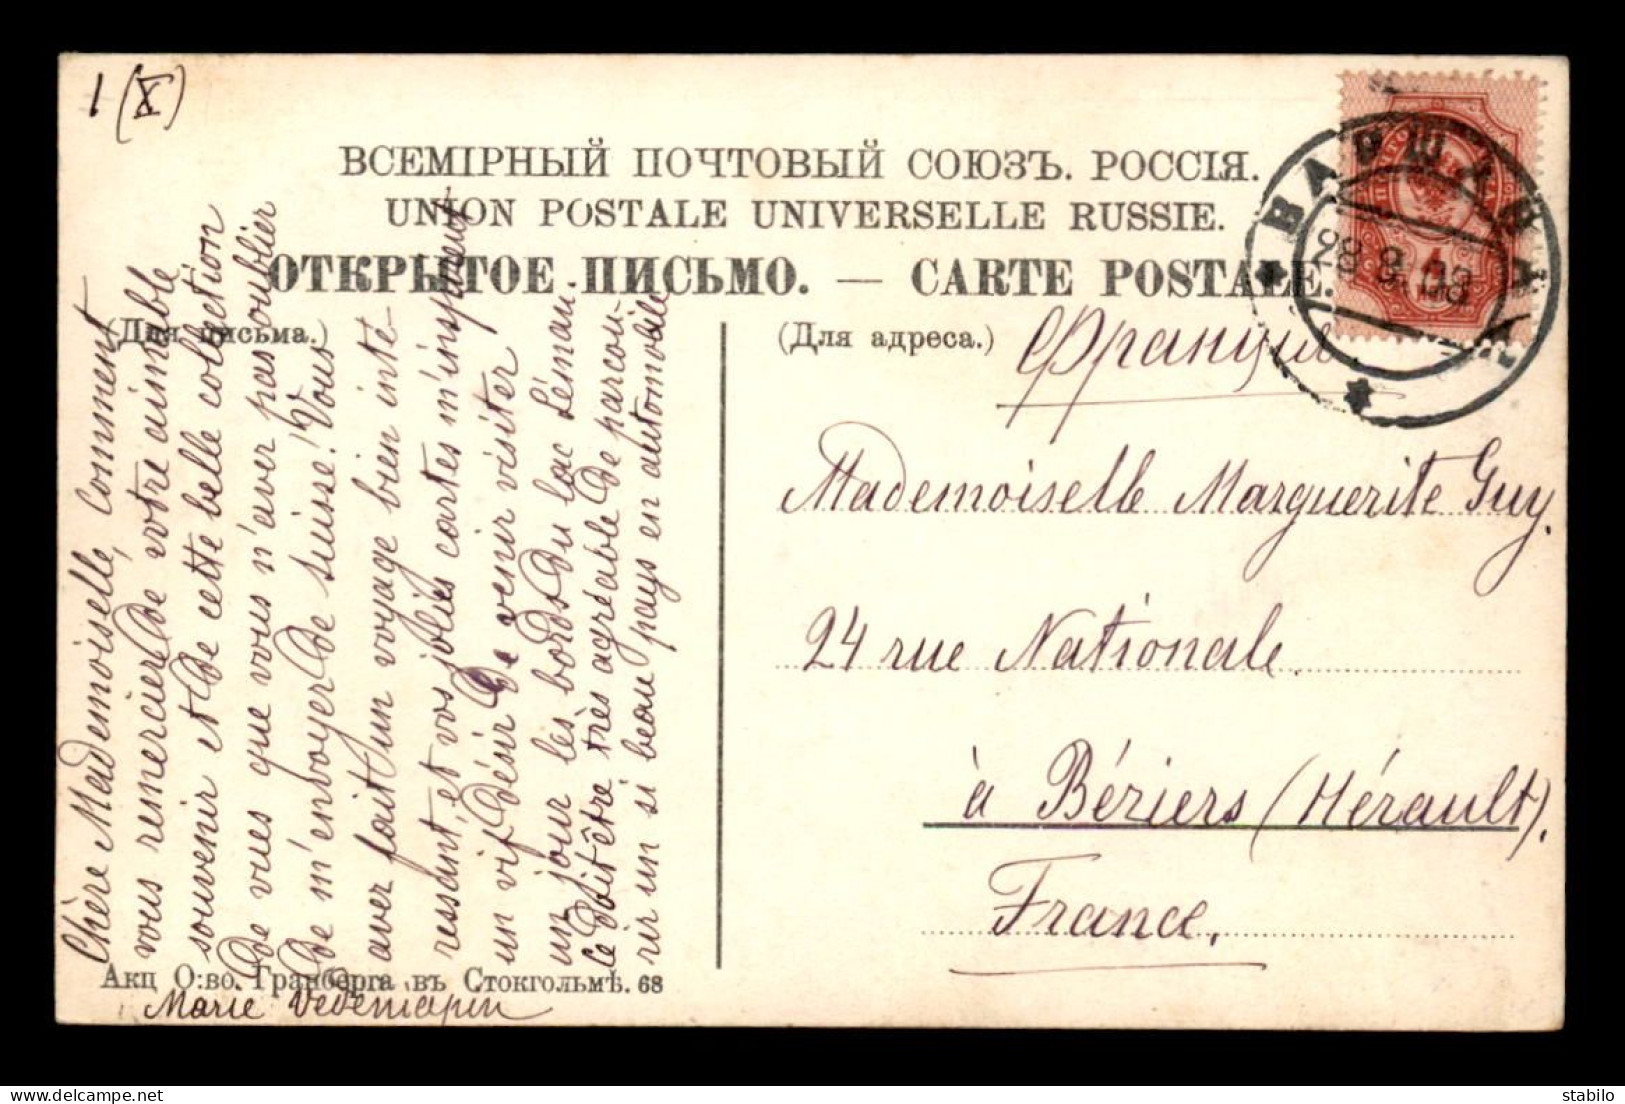 1 (X)
ВСЕМІРНЫЙ ПОЧТОВЫЙ СОЮЗЪ. РОССІЯ.
UNION POSTALE UNIVERSELLE RUSSIE.
ОТКРЫТОЕ ПИСЬМО. — CARTE POSTALE.
(Для письма.)
(Для адреса.)
ВАРШАВА
28 9. 08
Франція
Mademoiselle Marguerite Guy.
24 rue Nationale.
à Béziers (Hérault).
France.
Chère Mademoiselle, Comment
vous remercier de votre aimable
souvenir et de cette belle collection
de vues que vous n'aver pas oublier
de m'envoyer de suisse! Vous
aver fait un voyage bien inté-
ressant, et vos jolies cartes m'inspirent
un vif désir de venir visiter
un jour les bords du lac Léman.
Ce doit être très agréable de parcou-
rir un si beau pays en automobile
Акц О:во. Гранберга въ Стокгольмѣ. 68
Marie
stabilo
delcampe.net